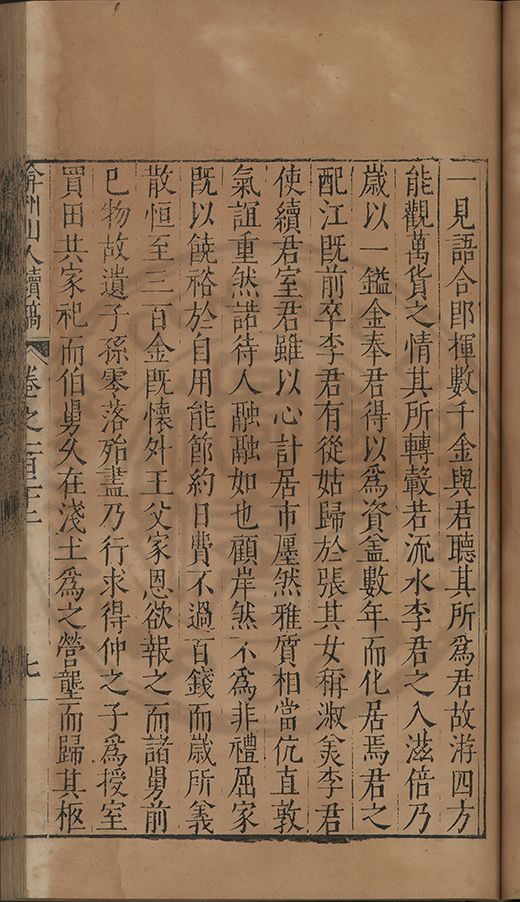 一見語合即揮數千金與君聽其所爲君故游四方
能觀萬貨之情其所轉轂若流水李君之入滋倍乃
歲以一鎰金奉君得以爲資益數年而化居焉君之
配江既前卒李君有從姑歸於張其女稱淑矣李君
使續君室君雖以心計居市廛然雅質相當伉直敦
氣誼重然諾待人融融如也顧岸然不爲非禮屈家
既以饒裕於自用能節約日費不過百錢而歲所義
散恒至三百金既懷外王父家恩欲報之而諸舅前
已物故遺子孫零落殆盡乃行求得仲之子爲授室
買田共其家祀而伯舅久在淺土爲之營壟而歸其柩
弇州山人續稿
卷之一百十二
七